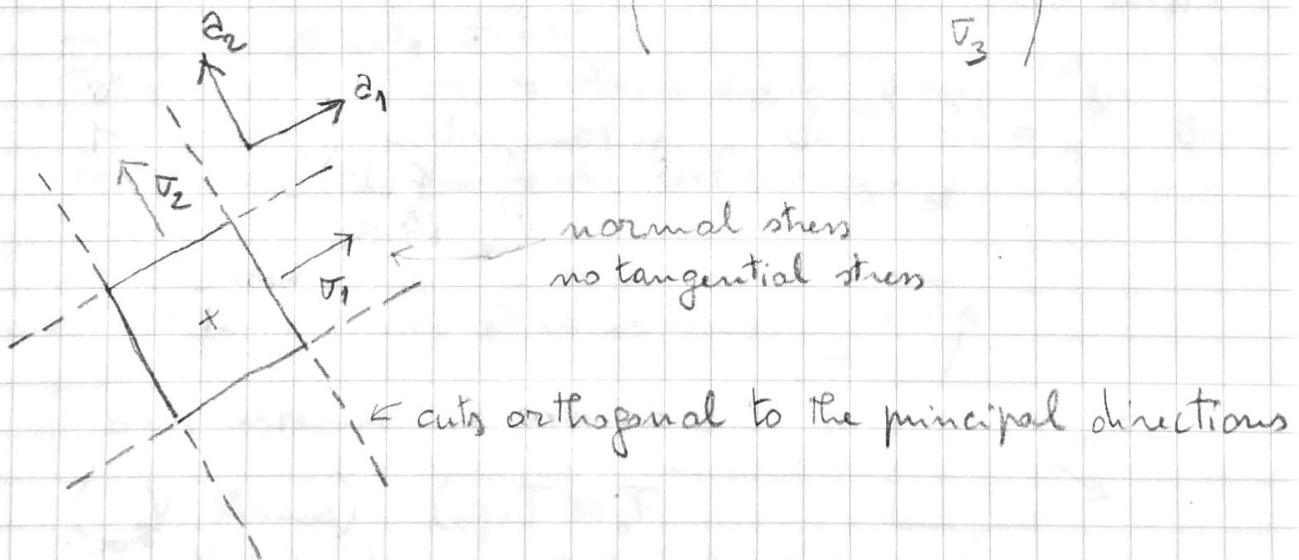 σ3
a2
a1
σ2
normal stress
σ1
no tangential stress
x
← cuts orthogonal to the principal directions